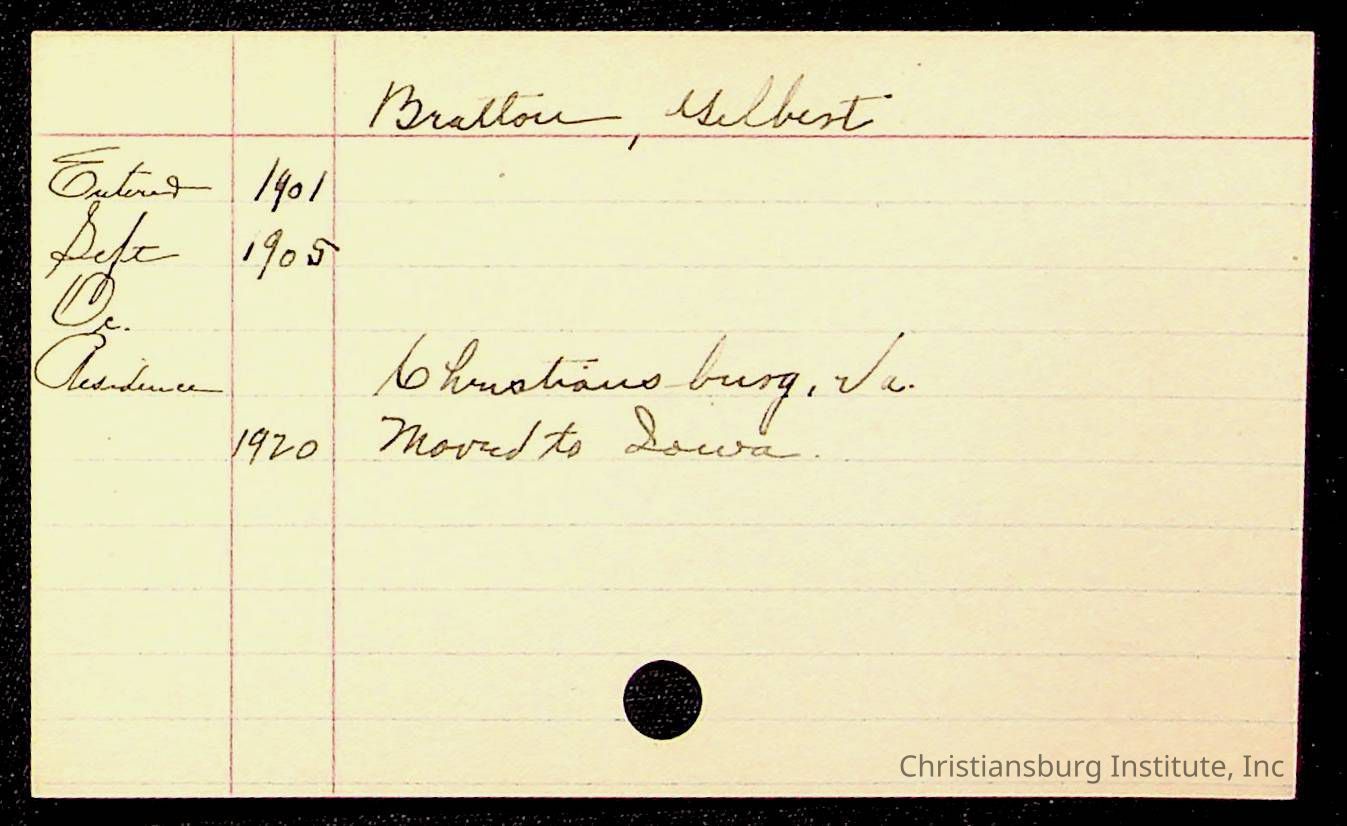 Bratton, Gilbert
Entered 1901
Left 1905
Oc.
Residence Christiansburg, Va.
1920 Moved to Iowa.
Christiansburg Institute, Inc